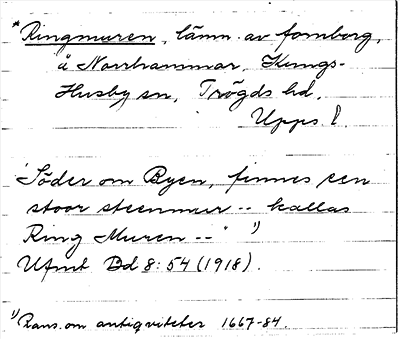 *Ringmuren, lämn. av fornborg,
å Norrhammar, Kungs-
Husby sn, Trögds hd,
Upps. l.
'Söder om Byen, finnes een
stoor steenmur -- kallas
Ring Muren --' 1)
Ufmt Bd 8:54 (1918).
1) Rans. om antiqviteter 1667-84.